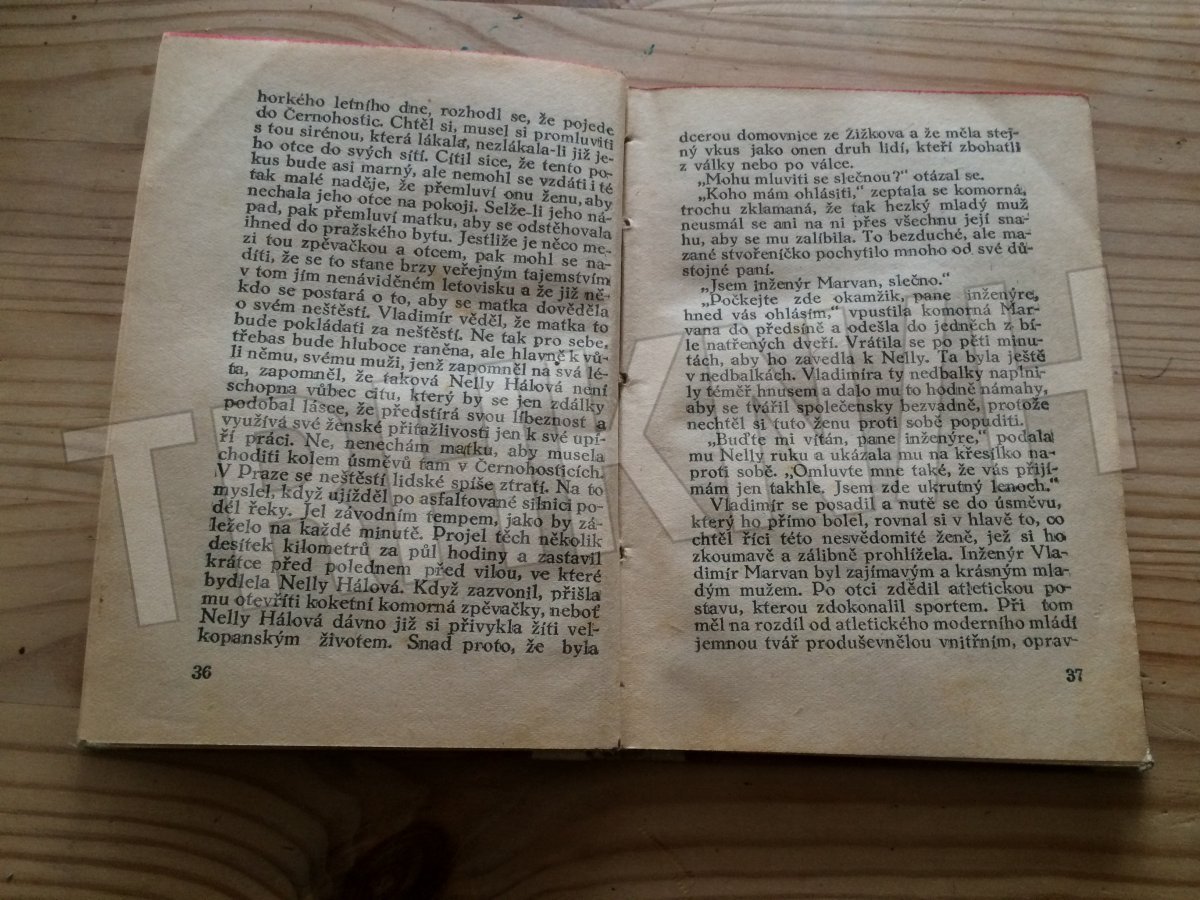 horkého letního dne, rozhodl se, že pojede
do Černohostic. Chtěl si, musel si promluviti
s tou sirénou, která lákala, nezlákala-li již je-
ho otce do svých sítí. Cítil sice, že tento po-
kus bude asi marný, ale nemohl se vzdáti i té
tak malé naděje, že přemluví onu ženu, aby
nechala jeho otce na pokoji. Selže-li jeho ná-
pad, pak přemluví matku, aby se odstěhovala
ihned do pražského bytu. Jestliže je něco me-
zi tou zpěvačkou a otcem, pak mohl se na-
díti, že se to stane brzy veřejným tajemstvím
v tom jím nenáviděném letovisku a že již ně-
kdo se postará o to, aby se matka dověděla
o svém neštěstí. Vladimír věděl, že matka to
bude pokládati za neštěstí. Ne tak pro sebe,
třebas bude hluboce raněna, ale hlavně k vů-
li němu, svému muži, jenž zapomněl na svá lé-
ta, zapomněl, že taková Nelly Hálová není
schopna vůbec citu, který by se jen zdálky
podobal lásce, že předstírá svou líbeznost a
využívá své ženské přitažlivosti jen k své upí-
ří práci. Ne, nenechám matku, aby musela
choditi kolem úsměvů tam v Černohosticích.
V Praze se neštěstí lidské spíše ztratí. Na to
myslel, když ujížděl po asfaltované silnici po-
dél řeky. Jel závodním tempem, jako by zá-
leželo na každé minutě. Projel těch několik
desítek kilometrů za půl hodiny a zastavil
krátce před polednem před vilou, ve které
bydlela Nelly Hálová. Když zazvonil, přišla
mu otevříti koketní komorná zpěvačky, neboť
Nelly Hálová dávno již si přivykla žíti vel-
kopanským životem. Snad proto, že byla
36
dcerou domovnice ze Žižkova a že měla stej-
ný vkus jako onen druh lidí, kteří zbohatli
z války nebo po válce.
„Mohu mluviti se slečnou?" otázal se.
„Koho mám ohlásiti," zeptala se komorná,
trochu zklamaná, že tak hezký mladý muž
neusmál se ani na ni přes všechnu její sna-
hu, aby se mu zalíbila. To bezduché, ale ma-
zané stvořeníčko pochytilo mnoho od své dů-
stojné paní.
„Jsem inženýr Marvan, slečno."
„Počkejte zde okamžik, pane inženýre,
hned vás ohlásím," vpustila komorná Mar-
vana do předsíně a odešla do jedněch z bí-
le natřených dveří. Vrátila se po pěti minu-
tách, aby ho zavedla k Nelly. Ta byla ještě
v nedbalkách. Vladimíra ty nedbalky naplni-
ly téměř hnusem a dalo mu to hodně námahy,
aby se tvářil společensky bezvadně, protože
nechtěl si tuto ženu proti sobě popuditi.
„Buďte mi vítán, pane inženýre," podala
mu Nelly ruku a ukázala mu na křesílko na-
proti sobě. „Omluvte mne také, že vás přijí-
mám jen takhle. Jsem zde ukrutný lenoch."
Vladimír se posadil a nutě se do úsměvu,
který ho přímo bolel, rovnal si v hlavě to, co
chtěl říci této nesvědomité ženě, jež si ho
zkoumavě a zálibně prohlížela. Inženýr Vla-
dimír Marvan byl zajímavým a krásným mla-
dým mužem. Po otci zdědil atletickou po-
stavu, kterou zdokonalil sportem. Při tom
měl na rozdíl od atletického moderního mládí
jemnou tvář produševnělou vnitřním, oprav-
37